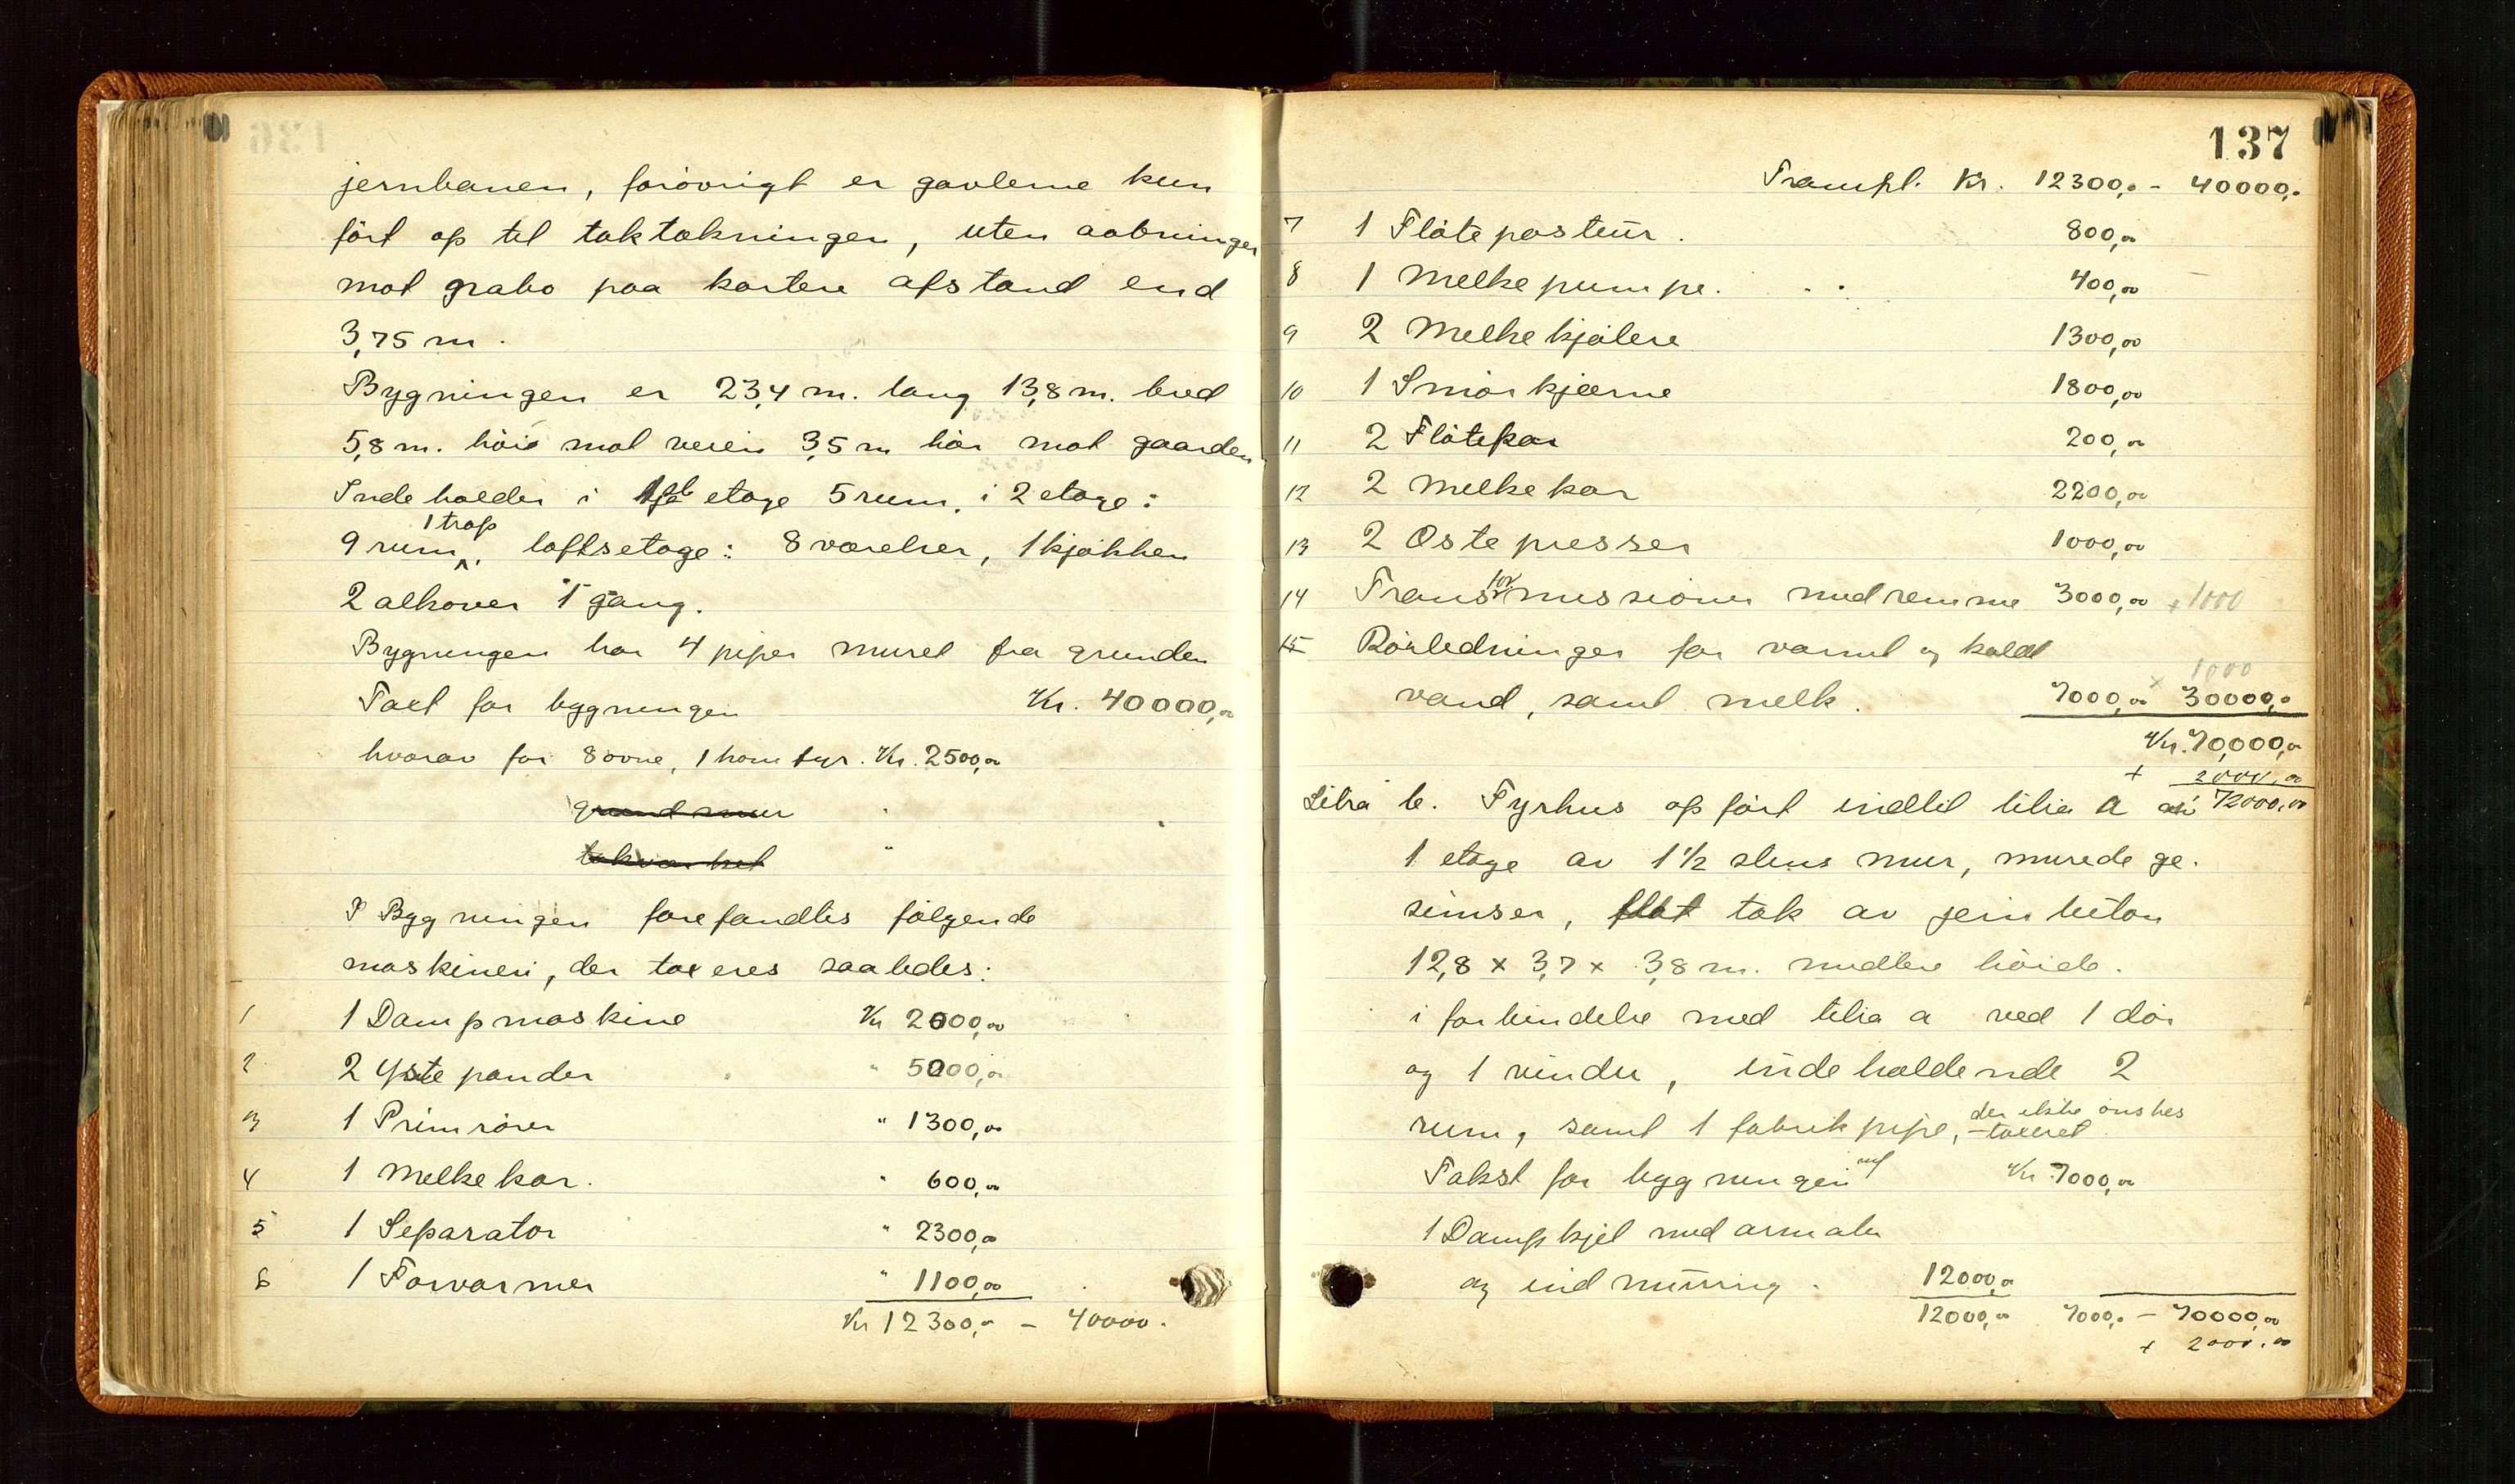 jernbanen, forøvrigt er gavlerne kun
ført op til taktækningen, uten aabninger
mot grabo paa kortere afstand end
3,75 m.
Bygningen er 23,4 m. lang 13,8 m. bred
5,8 m. høi mot veien 3,5 m høi mot gaarden
Indeholder i etage 5 rum, i 2 etage:
1 trap
9 rum, loftsetage: 8 værelser, 1 kjøkken
2 alkover 1 gang.
Bygningen har 4 piper muret fra grunden
Taxt for bygningen Kr. 40000,00
hvorav for 8 ovne, 1 komfyr. Kr. 2500,00
grundmur "
takværket "
I Bygningen forefandtes følgende
maskineri, der taxeres saaledes:
1 1 Dampmaskine Kr 2000,00
2 2 Ystepander " 5000,00
3 1 Primrører " 1300,00
4 1 Melkekar. " 600,00
5 1 Separator " 2300,00
6 1 Forvarmer " 1100,00
Kr 12300,00 - 40000.
137
Transpt. Kr. 12300,00 - 40000,00
7 1 Fløtepasteur. 800,00
8 1 Melkepumpe. 400,00
9 2 Melkekjølere 1300,00
10 1 Smørkjærne 1800,00
11 2 Fløtekar 200,00
12 2 Melkekar 2200,00
13 2 Ostepresser 1000,00
14 Transmissioner med remme 3000,00 + 1000
15 Rørledninger for varmt og koldt
+ 1000
vand, samt melk. 7000,00 30000,00
Kr. 70,000,00
+ 2000,00
Litra b. Fyrhus opført indtil litra a i 72000,00
1 etage av 1 1/2 stens mur, murede ge-
simser, flat tak av jernbeton
12,8 x 3,7 x 3,8 m. midlere høide.
i forbindelse med litra a ved 1 dør
og 1 vindu, indeholdende 2
der ikke ønskes
rum, samt 1 fabrikpipe, - taxeret
Takst for bygningen Kr 7000,00
1 Dampkjel med armatur
og indmuring. 12000,00
12000,00 7000,00 - 70000,00
+ 2000,00